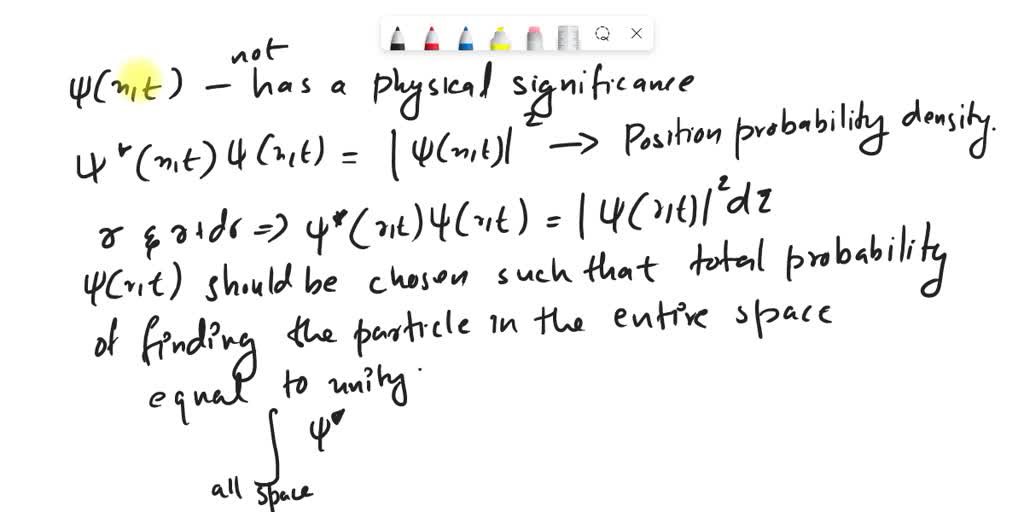 not
ψ(r,t) – has a physical significance
ψ*(r,t) ψ(r,t) = |ψ(r,t)|² → Position probability density.
r & r+dr => ψ*(r,t) ψ(r,t) = |ψ(r,t)|² dz
ψ(r,t) should be chosen such that total probability
of finding the particle in the entire space
equal to unity.
∫ ψ*
all space